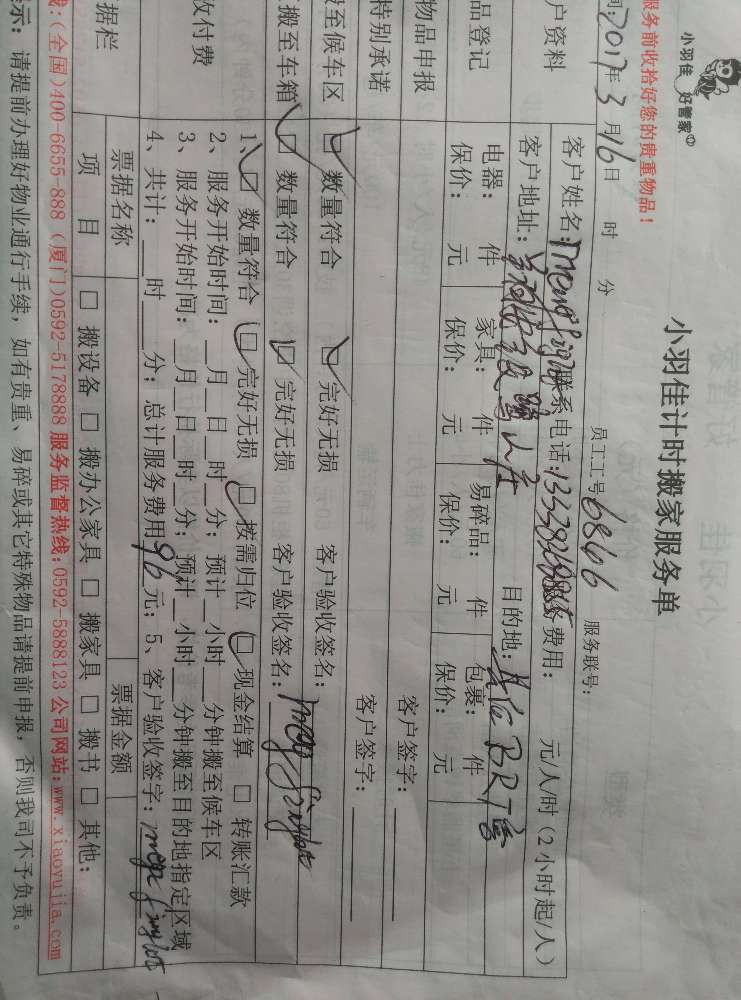 小羽佳 好管家
小羽佳计时搬家服务单
服务前收拾好您的贵重物品！
员工工号6846 服务联号：
间：2017年3月16日 时 分
户资料
客户姓名： 联系电话： 费用： 元/人/时（2小时起/人）
客户地址： 目的地： BRT
品登记
电器： 件 家具： 件 易碎品： 件 包裹： 件
保价： 元 保价： 元 保价： 元 保价： 元
物品申报 客户签字：
特别承诺 客户签字：
至候车区 数量符合 完好无损 客户验收签名：
搬至车箱 数量符合 完好无损 客户验收签名：
收付费
1、 数量符合 完好无损 按需归位 现金结算 转账汇款
2、服务开始时间：__月__日__时__分；预计__小时__分钟搬至候车区
3、服务开始时间：__月__日__时__分；预计__小时__分钟搬至目的地指定区域
4、共计：__时__分；总计服务费用96元；5、客户验收签字：
据栏
票据名称 票据金额
项 目 搬设备 搬办公家具 搬家具 搬书 其他：
线：（全国）400-6655-888（厦门）0592-5178888 服务监督热线：0592-5888123 公司网站：www.xiaoyujia.com
示：请提前办理好物业通行手续，如有贵重、易碎或其它特殊物品请提前申报，否则我司不予负责。